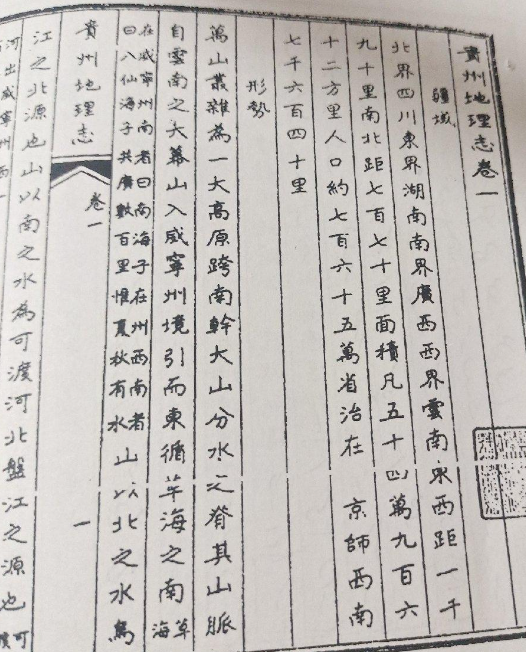 貴州地理志卷一
疆域
北界四川東界湖南南界廣西西界雲南東西距一千
九十里南北距七百七十里面積凡五十四萬九百六
十二方里人口約七百六十五萬省治在 京師西南
七千六百四十里
形勢
萬山叢雜為一大高原跨南幹大山分水之脊其山脈
自雲南之大幕山入威寧州境引而東循草海之南草海
在威寧州南者曰南海子在州西南者
曰八仙海子共廣數百里惟夏秋有水
山以北之水烏
貴州地理志 卷一 一
江之北源也山以南之水為可渡河北盤江之源也可渡
河出威寧州西